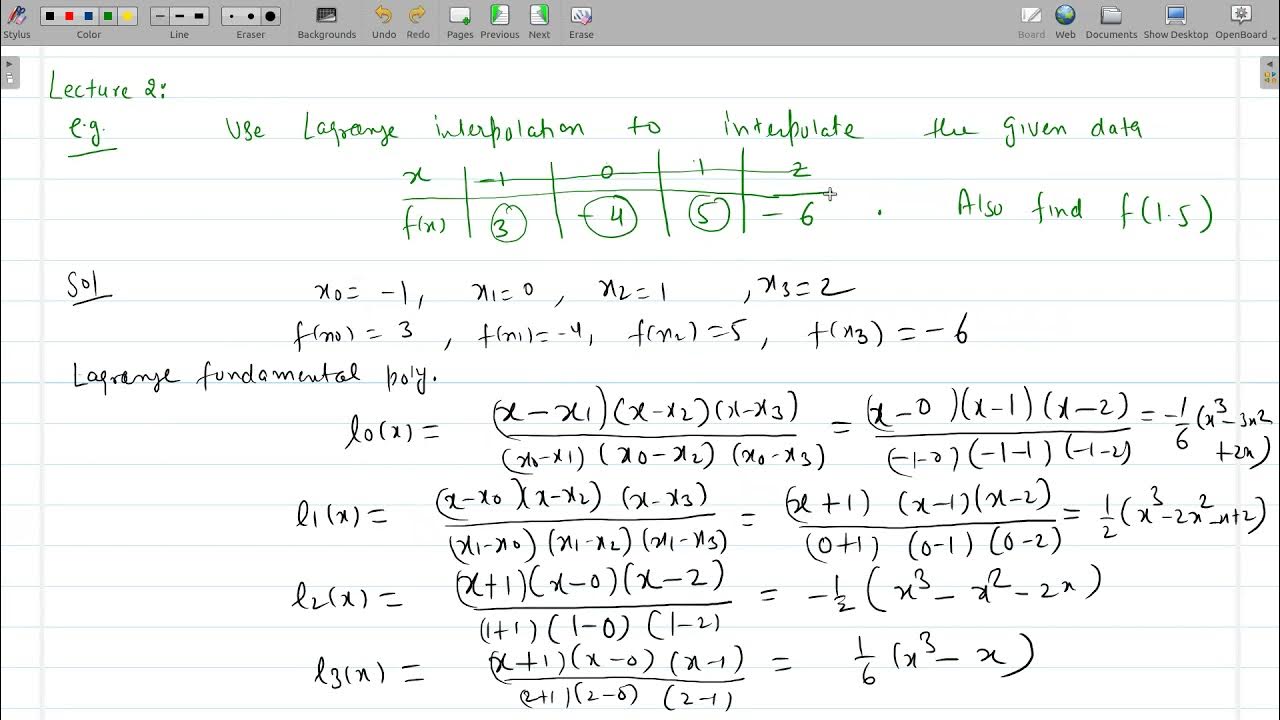 Stylus Color Line Eraser Backgrounds Undo Redo Pages Previous Next Erase Board Web Documents Show Desktop OpenBoard
Lecture 2:
e.g. Use Lagrange interpolation to interpolate the given data
x | -1 | 0 | 1 | 2
f(x) | 3 | -4 | 5 | -6 . Also find f(1.5)
Sol x0 = -1, x1=0, x2=1, x3=2
f(x0) = 3, f(x1)=-4, f(x2)=5, f(x3) = -6
Lagrange fundamental poly.
l0(x) = (x-x1)(x-x2)(x-x3) / (x0-x1)(x0-x2)(x0-x3) = (x-0)(x-1)(x-2) / (-1-0)(-1-1)(-1-2) = -1/6 (x³-3x²+2x)
l1(x) = (x-x0)(x-x2)(x-x3) / (x1-x0)(x1-x2)(x1-x3) = (x+1)(x-1)(x-2) / (0+1)(0-1)(0-2) = 1/2 (x³-2x²-x+2)
l2(x) = (x+1)(x-0)(x-2) / (1+1)(1-0)(1-2) = -1/2 (x³-x²-2x)
l3(x) = (x+1)(x-0)(x-1) / (2+1)(2-0)(2-1) = 1/6 (x³-x)